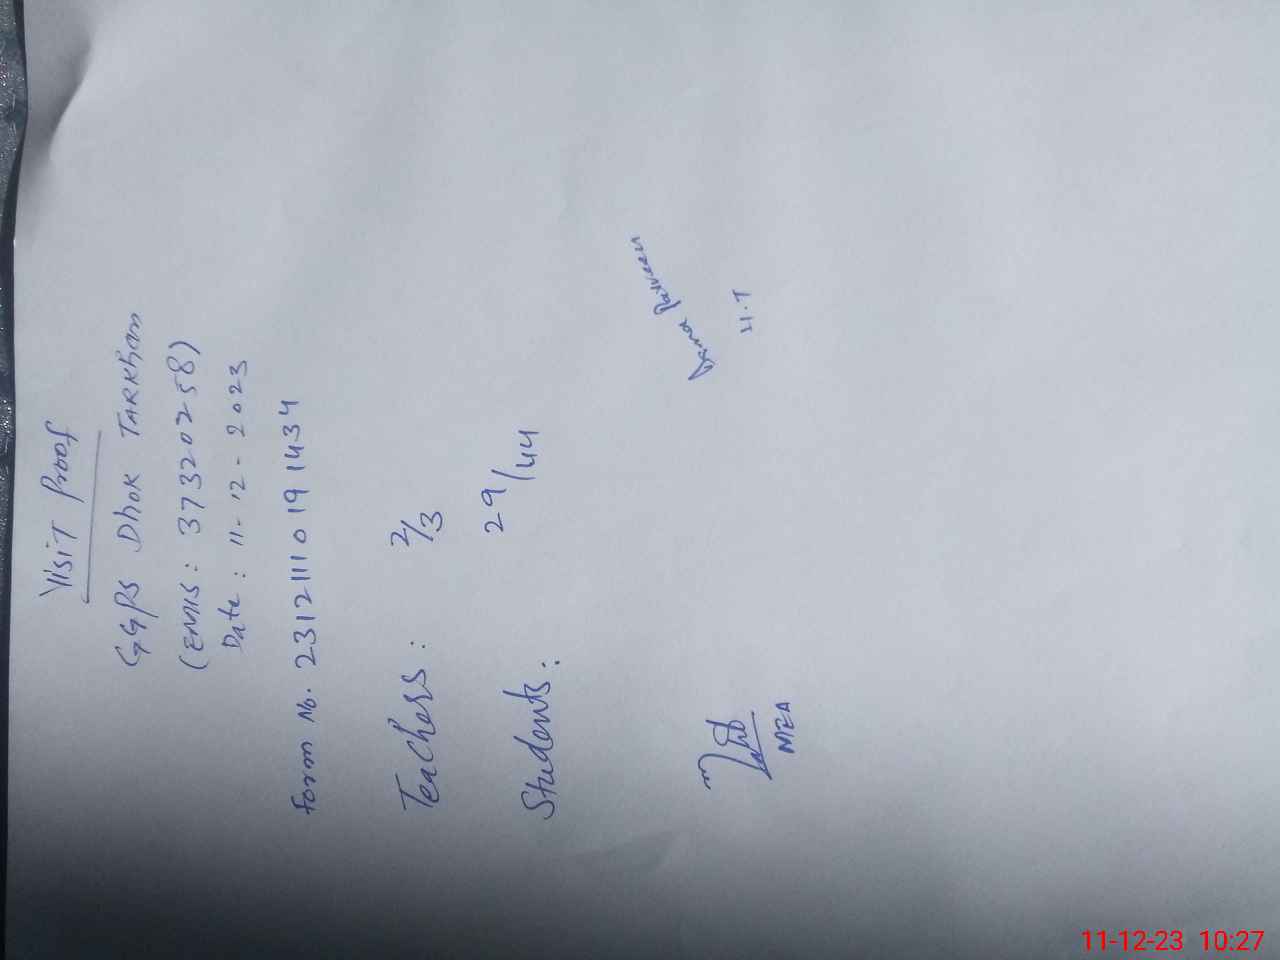 Visit Proof
GGPS Dhok TARKhan
(EMIS: 37320258)
Date: 11-12-2023
Form No. 23121110191434
Teachers: 2/3
Students: 29/44
Parveen
H.T
MEA
11-12-23 10:27